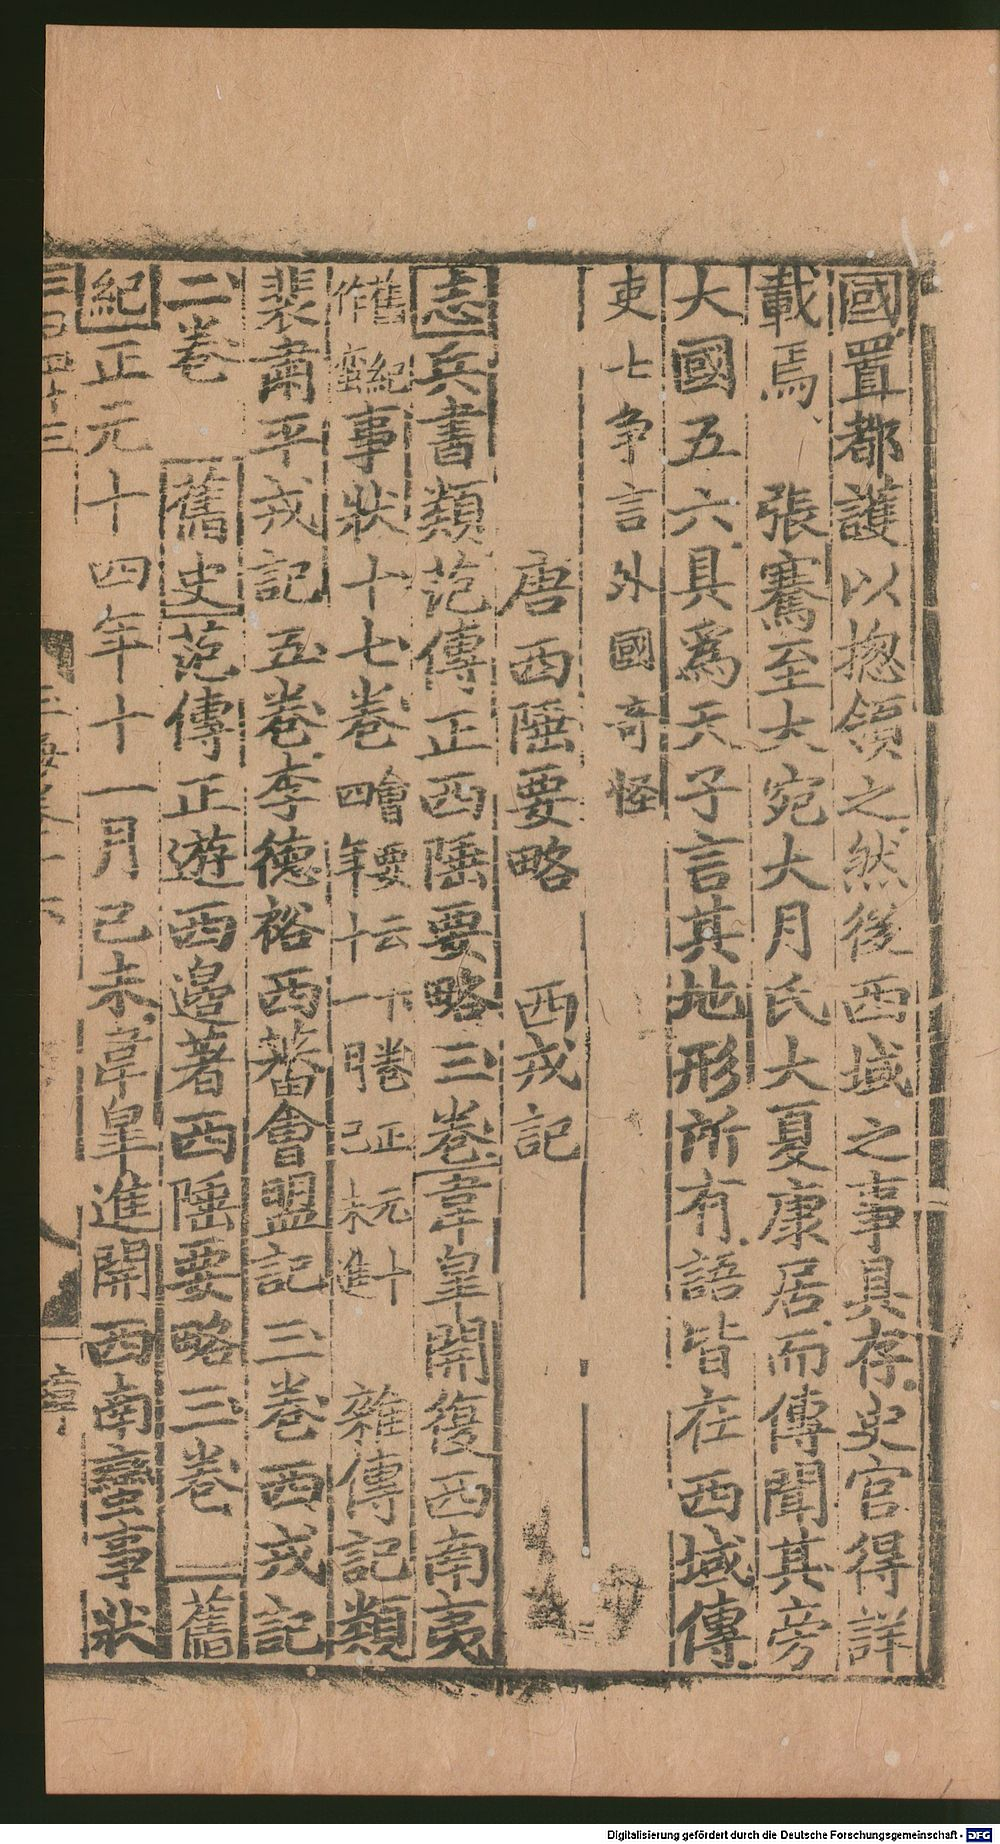 國置都護以揔領之然後西域之事具存史官得詳
載焉 張騫至大宛大月氏大夏康居而傳聞其旁
大國五六具爲天子言其地形所有語皆在西域傳
吏士争言外國奇怪
唐西陲要略 西戎記
志兵書類范傳正西陲要略三卷韋皐開復西南夷
事狀十七卷
舊紀
作蠻
會要云十七卷正元十
四年十一月己未進
雜傳記類
裴肅平戎記五卷李德裕西蕃會盟記三卷西戎記
二卷 舊史范傳正遊西邊著西陲要略三卷 舊
紀正元十四年十一月己未韋皐進開西南蠻事狀
Digitalisierung gefördert durch die Deutsche Forschungsgemeinschaft - DFG